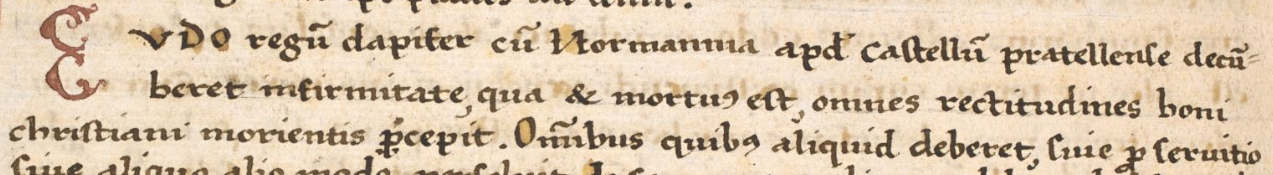 EVDO regū dapifer cū Normannia apd̄ Castellū pratellense decū-
beret infirmitate, qua & mortuꝰ est, omnes rectitudines boni
christiani morientis p̄cepit. Om̄ibus quibꝰ aliquid deberet, siue ꝓ seruitio
siue aliquo alio modo